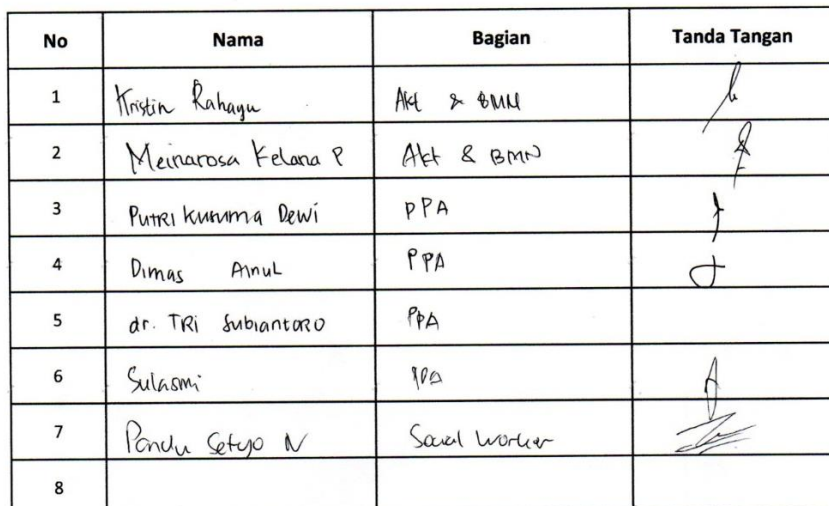 No Nama Bagian Tanda Tangan
1 Kristin Rahayu Akt & BMN
2 Meinarosa Kelana P Akt & BMN
3 PUTRI KUSUMA Dewi PPA
4 Dimas AinuL PPA
5 dr. TRI Subiantoro PPA
6 Sulasmi PPA
7 Pandu Setyo N Social Worker
8